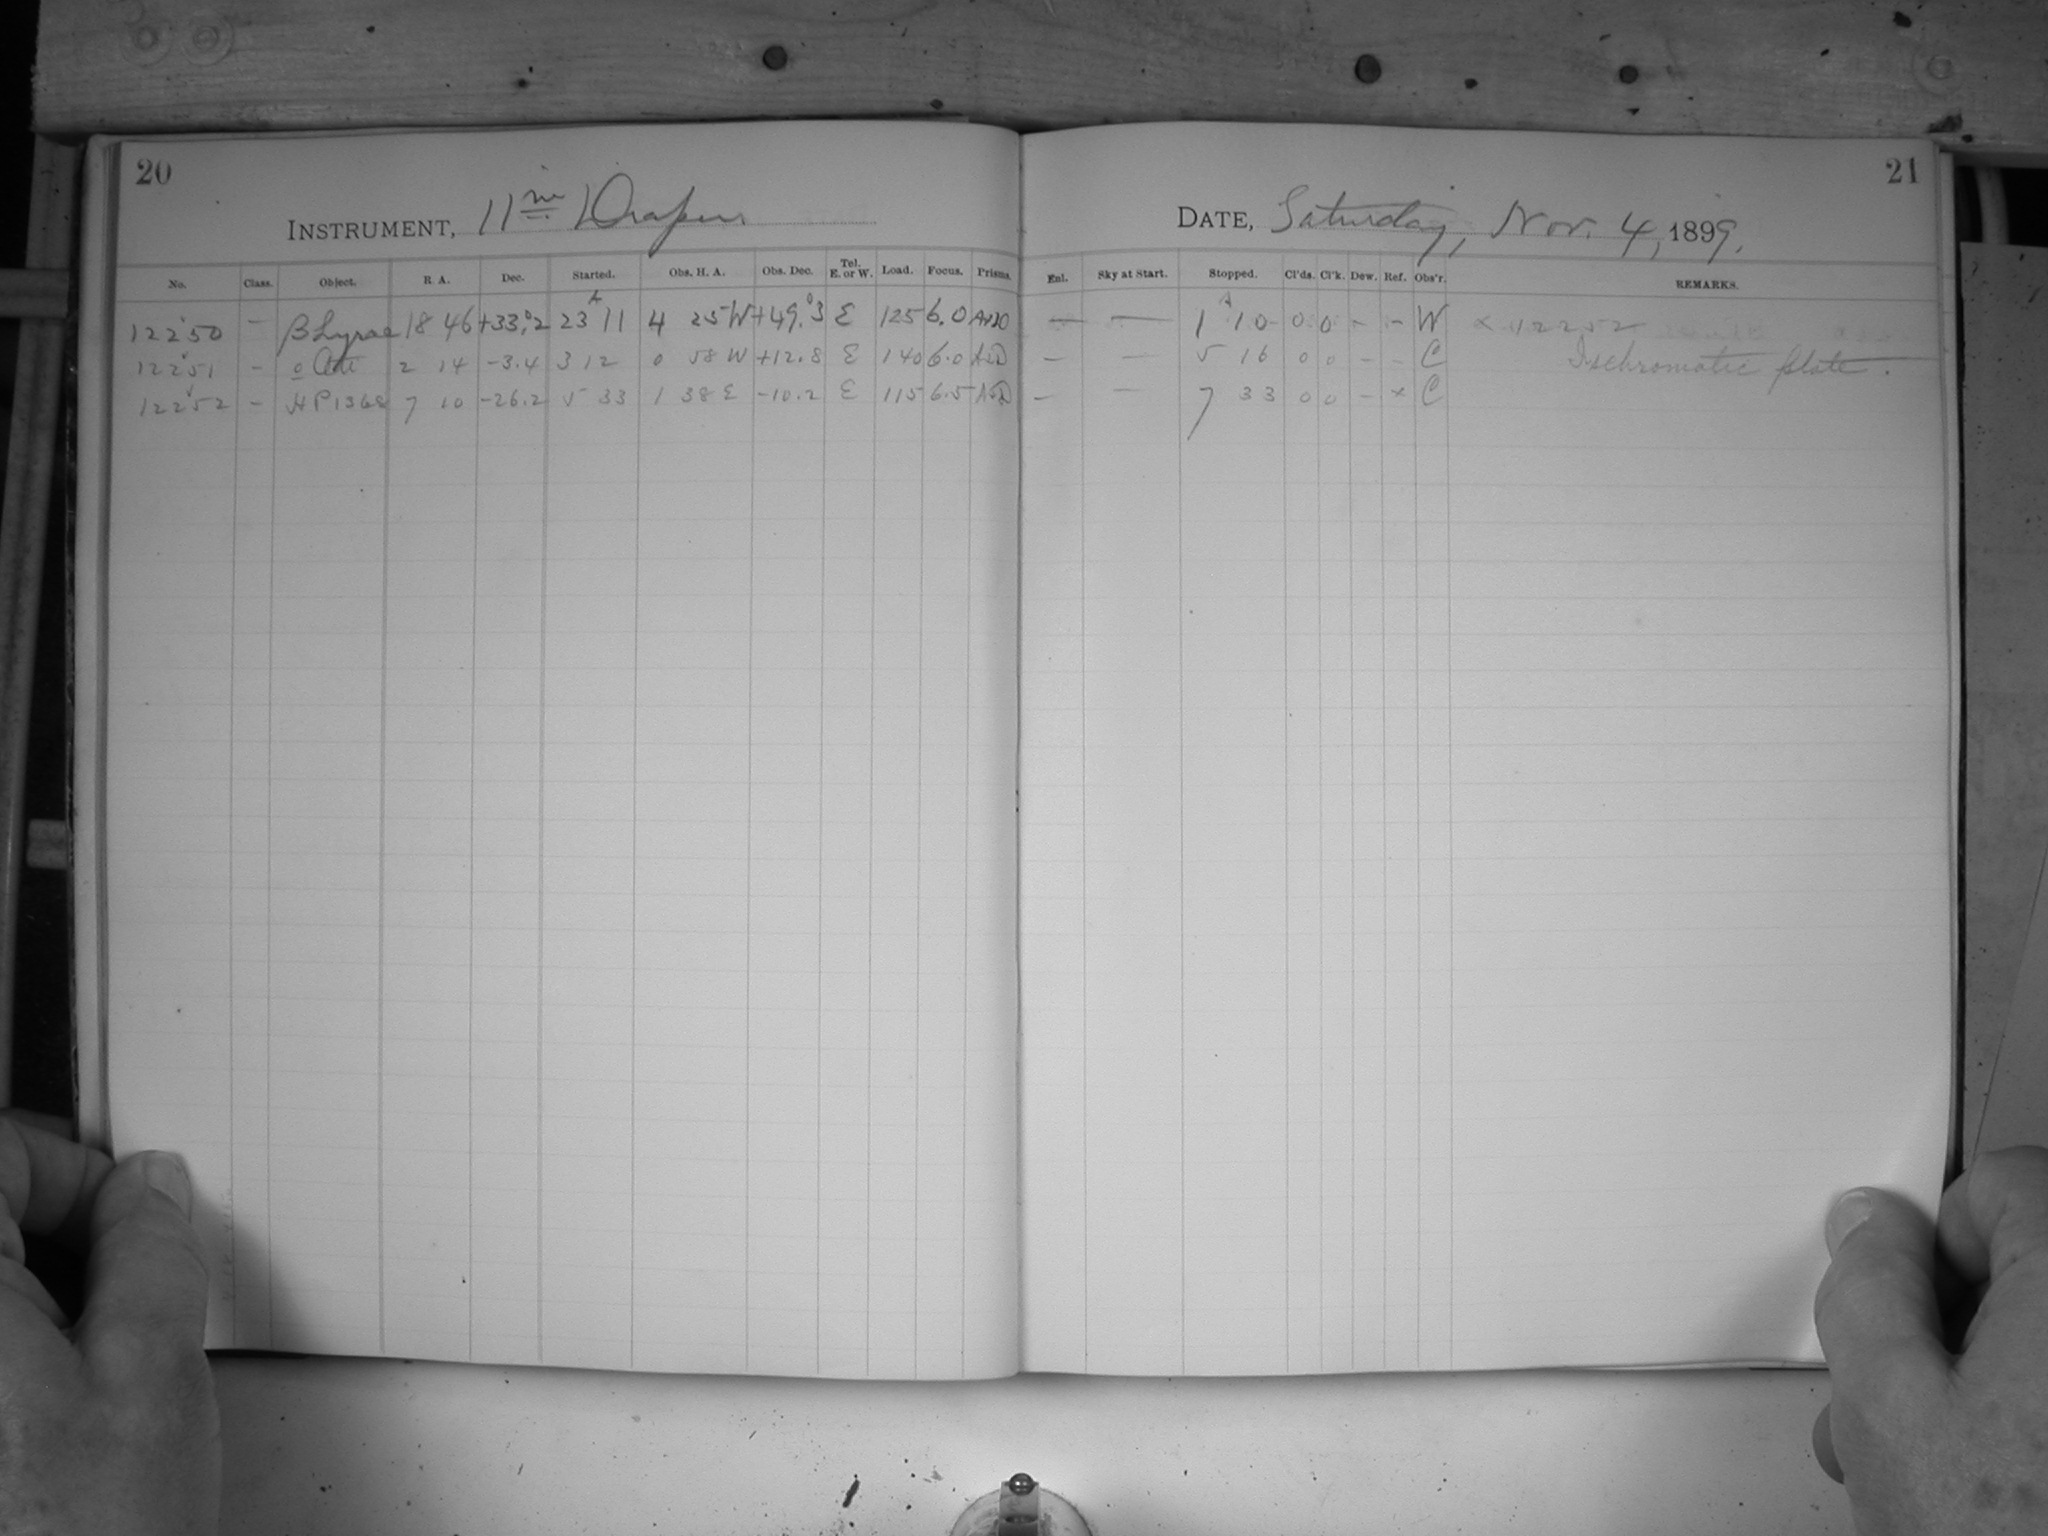 20
INSTRUMENT, 11 in Draper.
No. Class. Object. R A. Dec. Started. Obs. H. A. Obs. Dec. Tel. E. or W. Load. Focus. Prisms.
12250 – β Lyrae 18 46 +33.°2 23 11 4 25 W +49.°3 E 125 6.0
12251 – o Ceti 2 14 -3.4 3 12 0 58 W +12.8 E 140 6.0
12252 – HP 1368 7 10 -26.2 5 33 1 38 E -10.2 E 115 6.5
21
DATE, Saturday, Nov. 4, 1899.
Enl. Sky at Start. Stopped. Cl'ds. Cl'k. Dew. Ref. Obs'r. REMARKS.
— — 1 10 0 0 - - W × 12252
— — 5 16 0 0 - - C Isochromatic plate.
— — 7 33 0 0 - × C